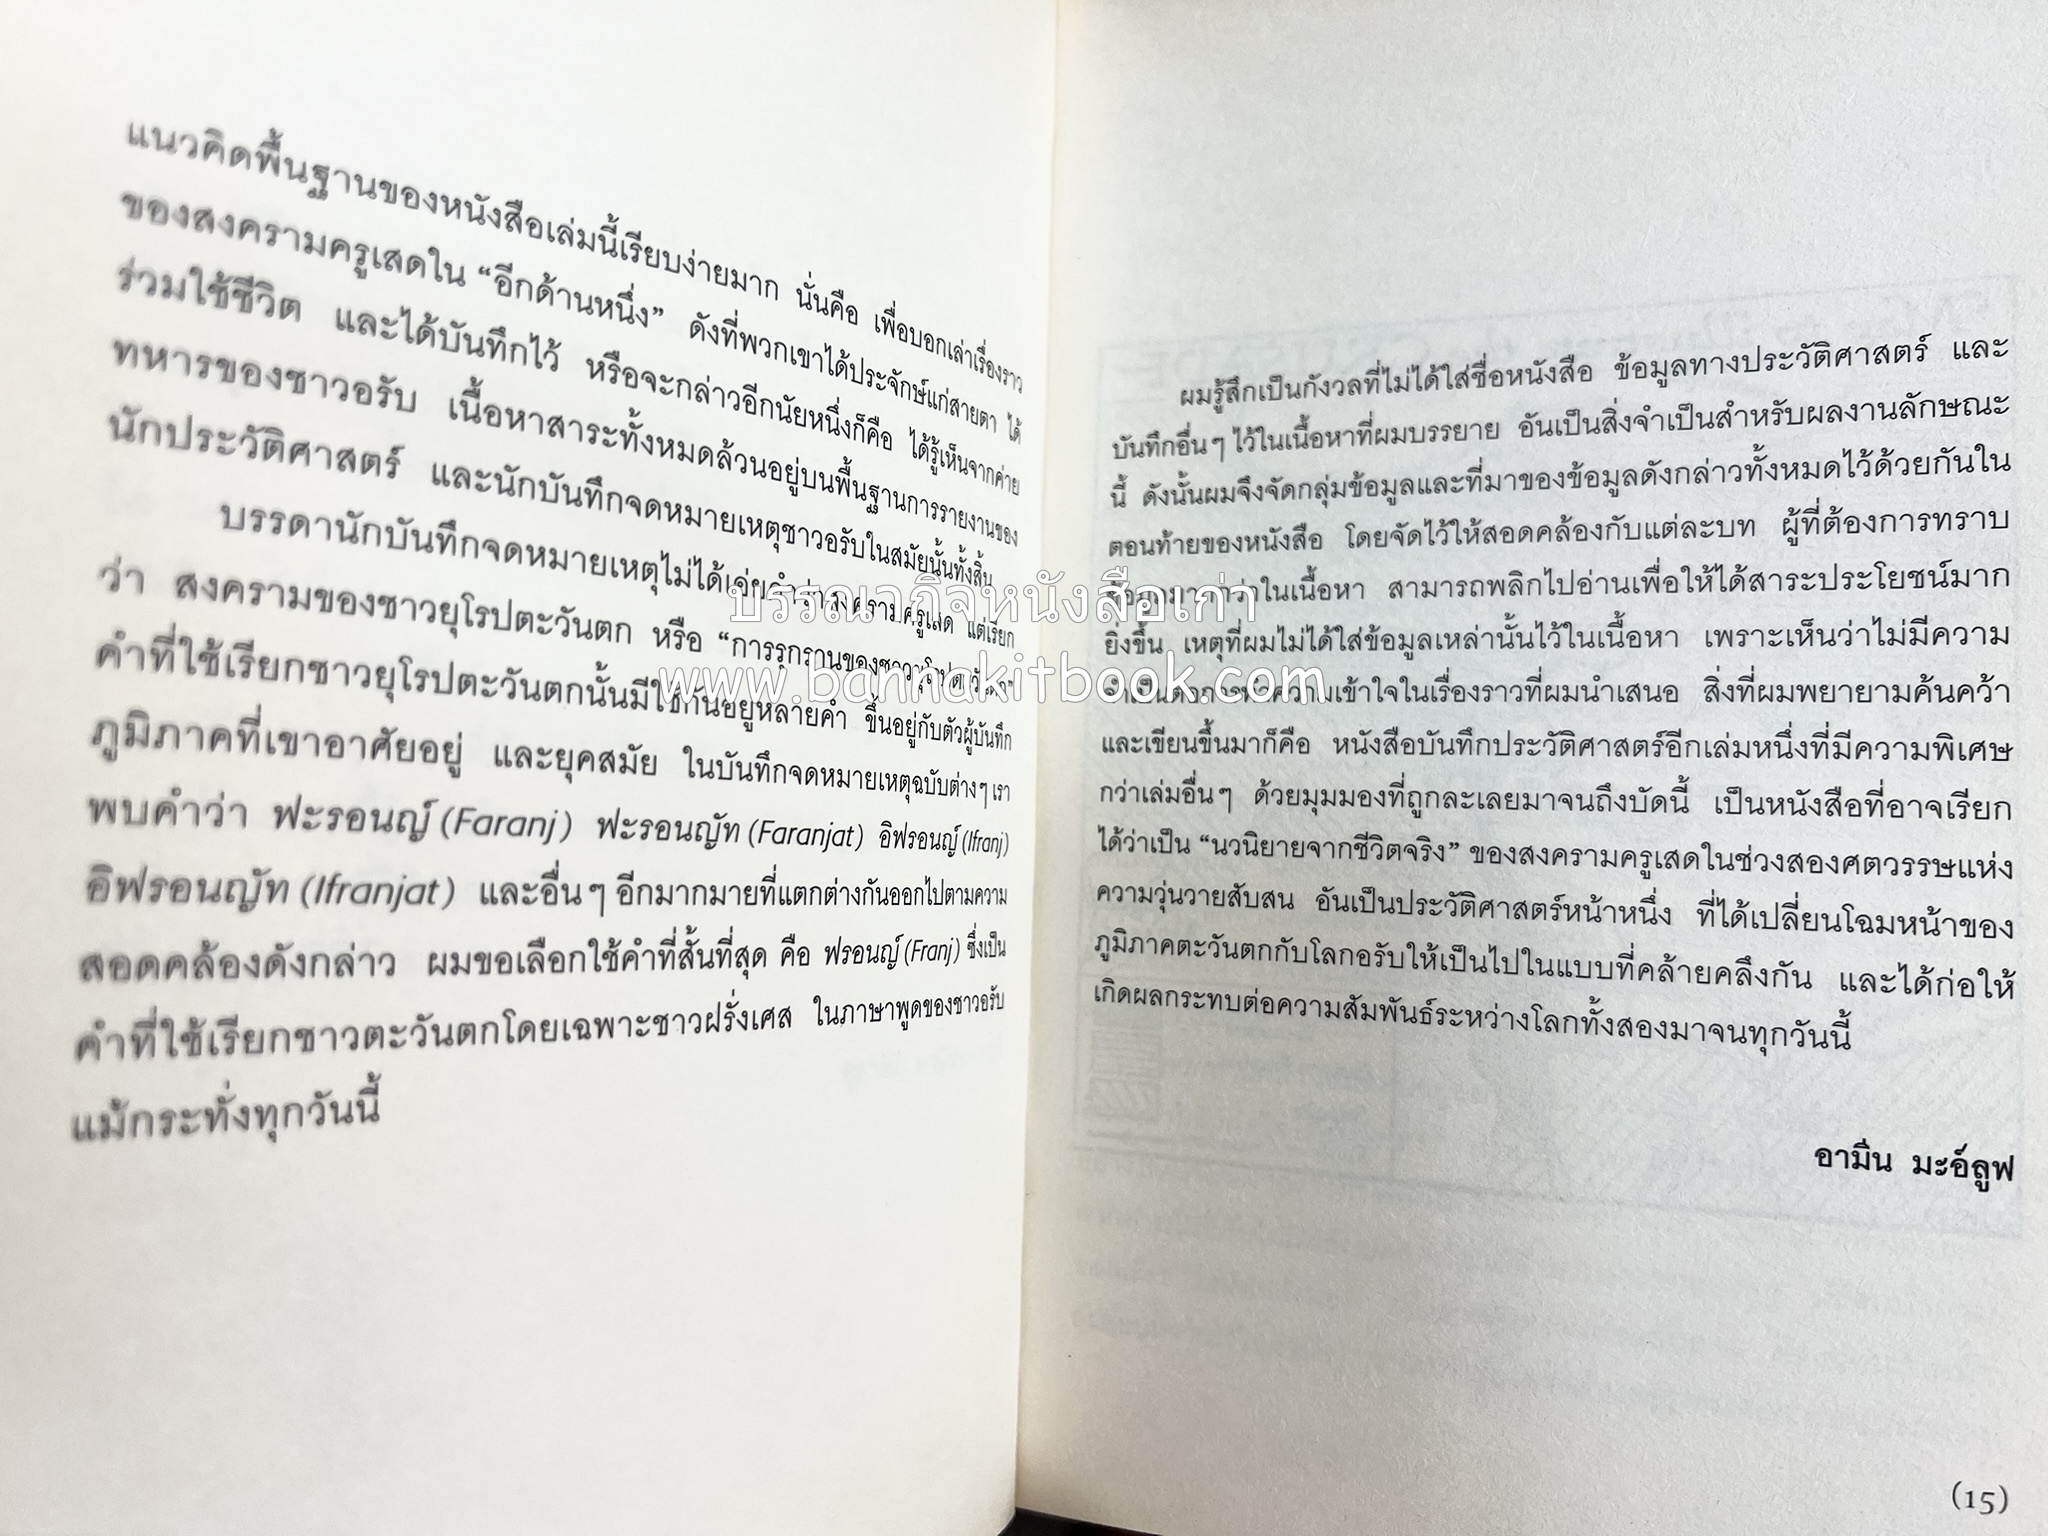 แนวคิดพื้นฐานของหนังสือเล่มนี้เรียบง่ายมาก นั่นคือ เพื่อบอกเล่าเรื่องราว
ของสงครามครูเสดใน “อีกด้านหนึ่ง” ดังที่พวกเขาได้ประจักษ์แก่สายตา ได้
ร่วมใช้ชีวิต และได้บันทึกไว้ หรือจะกล่าวอีกนัยหนึ่งก็คือ ได้รู้เห็นจากค่าย
ทหารของชาวอรับ เนื้อหาสาระทั้งหมดล้วนอยู่บนพื้นฐานการรายงานของ
นักประวัติศาสตร์ และนักบันทึกจดหมายเหตุชาวอรับในสมัยนั้นทั้งสิ้น
บรรดานักบันทึกจดหมายเหตุไม่ได้เอ่ยคำว่าสงครามครูเสด แต่เรียก
ว่า สงครามของชาวยุโรปตะวันตก หรือ “การรุกรานของชาวยุโรปตะวันตก”
คำที่ใช้เรียกชาวยุโรปตะวันตกนั้นมีใช้กันอยู่หลายคำ ขึ้นอยู่กับตัวผู้บันทึก
ภูมิภาคที่เขาอาศัยอยู่ และยุคสมัย ในบันทึกจดหมายเหตุฉบับต่างๆ เรา
พบคำว่า ฟะรอนญ์ (Faranj) ฟะรอนญัท (Faranjat) อิฟรอนญ์ (Ifranj)
อิฟรอนญัท (Ifranjat) และอื่นๆ อีกมากมายที่แตกต่างกันออกไปตามความ
สอดคล้องดังกล่าว ผมขอเลือกใช้คำที่สั้นที่สุด คือ ฟรอนญ์ (Franj) ซึ่งเป็น
คำที่ใช้เรียกชาวตะวันตกโดยเฉพาะชาวฝรั่งเศส ในภาษาพูดของชาวอรับ
แม้กระทั่งทุกวันนี้
ผมรู้สึกเป็นกังวลที่ไม่ได้ใส่ชื่อหนังสือ ข้อมูลทางประวัติศาสตร์ และ
บันทึกอื่นๆ ไว้ในเนื้อหาที่ผมบรรยาย อันเป็นสิ่งจำเป็นสำหรับผลงานลักษณะ
นี้ ดังนั้นผมจึงจัดกลุ่มข้อมูลและที่มาของข้อมูลดังกล่าวทั้งหมดไว้ด้วยกันใน
ตอนท้ายของหนังสือ โดยจัดไว้ให้สอดคล้องกับแต่ละบท ผู้ที่ต้องการทราบ
กว่าในเนื้อหา สามารถพลิกไปอ่านเพื่อให้ได้สาระประโยชน์มาก
ยิ่งขึ้น เหตุที่ผมไม่ได้ใส่ข้อมูลเหล่านั้นไว้ในเนื้อหา เพราะเห็นว่าไม่มีความ
จำเป็นต่อการทำความเข้าใจในเรื่องราวที่ผมนำเสนอ สิ่งที่ผมพยายามค้นคว้า
และเขียนขึ้นมาก็คือ หนังสือบันทึกประวัติศาสตร์อีกเล่มหนึ่งที่มีความพิเศษ
กว่าเล่มอื่นๆ ด้วยมุมมองที่ถูกละเลยมาจนถึงบัดนี้ เป็นหนังสือที่อาจเรียก
ได้ว่าเป็น “นวนิยายจากชีวิตจริง” ของสงครามครูเสดในช่วงสองศตวรรษแห่ง
ความวุ่นวายสับสน อันเป็นประวัติศาสตร์หน้าหนึ่ง ที่ได้เปลี่ยนโฉมหน้าของ
ภูมิภาคตะวันตกกับโลกอรับให้เป็นไปในแบบที่คล้ายคลึงกัน และได้ก่อให้
เกิดผลกระทบต่อความสัมพันธ์ระหว่างโลกทั้งสองมาจนทุกวันนี้
อามีน มะอ์ลูฟ
(15)
บรรณากิจหนังสือเก่า
www.bannakitbook.com